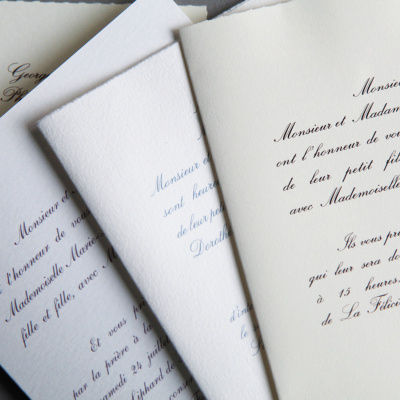 Georg
Ph
Monsieur et M
l'honneur de vous
Mademoiselle Marie
fille et fille, avec M
Et vous pr
par la prière à la
samedi 24 juillet
Monsieur e
sont heure
de leur pe
Dorothe
d'in
le s
Monsie
Monsieur et Madam
ont l'honneur de vou
de leur petit fils
avec Mademoiselle
Ils vous pri
qui leur sera do
à 15 heures
de La Félici